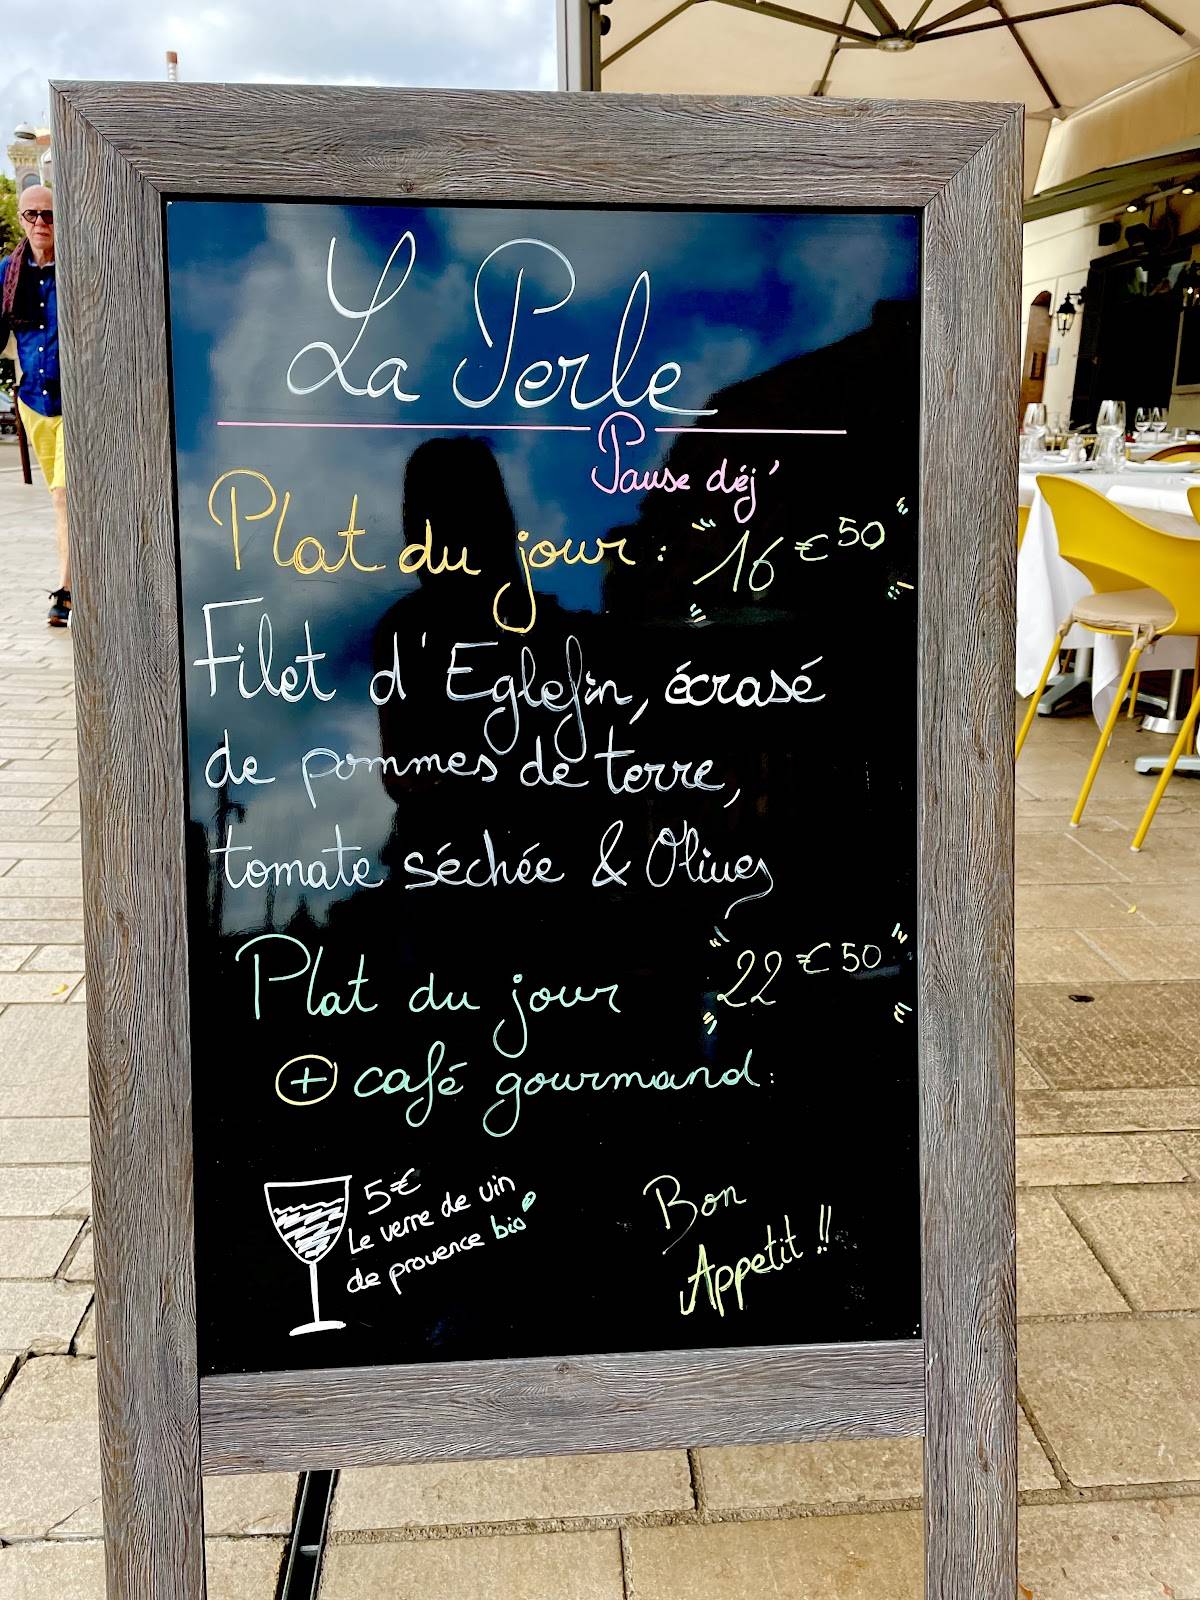 La Perle
Pause déj'
Plat du jour : "16€50"
Filet d'Eglefin, écrasé
de pommes de terre,
tomate séchée & Olives
Plat du jour "22€50"
+ café gourmand :
5€
Le verre de vin
de provence bio
Bon
Appetit !!